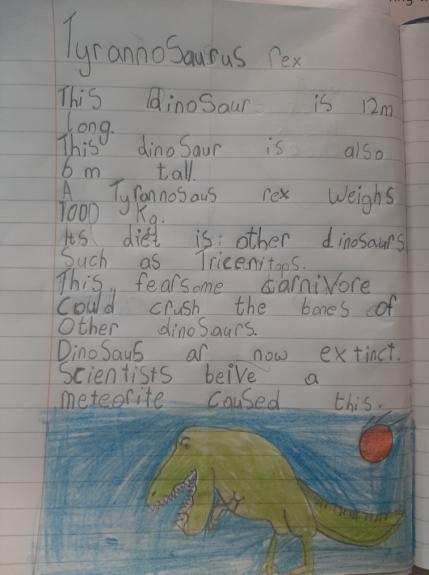 Tyrannosaurus rex
This dinosaur is 12m
long.
This dinosaur is also
6 m tall.
A Tyrannosaus rex weighs
7000 Kg.
Its diet is: other dinosaurs
Such as Triceritops.
This fearsome carnivore
could crush the bones of
Other dinosaurs.
Dinosaus ar now extinct.
Scientists beive a
meteorite caused this.